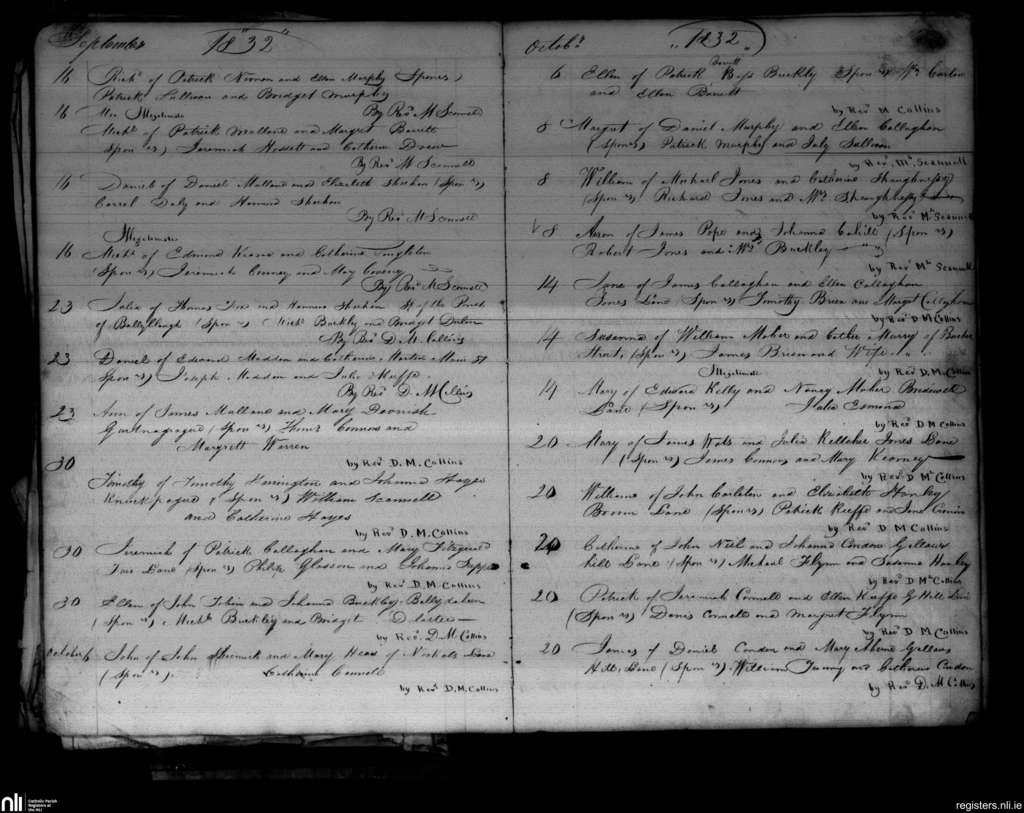 September 1832
16 Rich^d of Patrick Noonan and Ellen Murphy Spones,
Patrick Sullivan and Bridget Murphy
By Rev^d M Scannell
16 Illegitimate
Mich^l of Patrick Mullane and Margret Barrett
Spon^rs) Jeremiah and Catherine Drew
By Rev^d M Scannell
16 Daniel of Daniel Mullane and Elizabeth Sheehan (Spon^rs)
Daly and Sheehan
By Rev^d M Scannell
Illegitimate
16 Mich^l of Edmund Keane and Catherine Singleton
(Spon^rs) Jeremiah and May
By Rev^d M Scannell
23 Julia of Thomas Fox and Sheehan of the Parish
of (Spon^rs) Mich^l Buckley and Bridget
By Rev^d D. M. Collins
23 Daniel of Edward Madden and Catherine Martin Main St
Spon^rs) Joseph Madden and Julia Keeffe
By Rev^d D. M Collins
23 Ann of James Mullane and Mary
(Spon^rs) Connors and
Margrett Warren
by Rev^d D. M. Collins
30
Timothy of Timothy Harrington and Johanna Hayes
(Spon^rs) William Scannell
and Catherine Hayes
by Rev^d D. M. Collins
30 Jeremiah of Patrick Callaghan and Mary Fitzgerald
Fair Lane (Spon^rs) Philip Glasson and Johanna
by Rev^d D. M. Collins
30 Ellen of John Tobin and Johanna Buckley Ballydaheen
(Spon^rs) Mich^l Buckley and Bridget
by Rev^d. D. M. Collins
October 6 John of John and Mary Head of Nichols Lane
(Spon^rs). Catherine Connell
by Rev^d D. M. Collins
Octob^r 1832
Barrett
6 Ellen of Patrick Buckley Spon^rs W^m Carlen
and Ellen Barrett
by Rev^d M Collins
8 Margret of Daniel Murphy and Ellen Callaghan
(Spon^rs) Patrick Murphy and July Sullivan
by Rev^d. M^c. Scannell
8 William of Michael Jones and Catherine Shaughnessy
(Spon^rs) Richard Jones and M^rs Shaughnessy
by Rev^d M^c Scannell
8 Aron of James Pope and Johanna Cahill (Spon^rs)
Robert Jones and W^m Buckley
by Rev^d M^c Scannell
14 Jane of James Callaghan and Ellen Callaghan
Jones Lane (Spon^rs) Timothy Brien and Margt Callaghan
by Rev^d D M Collins
14 Susanna of William Maher and Cathe Murry of
Street, (Spon^rs) James Brien and Wife
by Rev^d D M. Collins
Illegitimate
14 Mary of Edward Kelly and Nancy Maher Bridewell
Lane (Spon^rs) Julia Esmond
by Rev^d D M Collins
20 Mary of James Wats and Julia Kelleher Jones Lane
(Spon^rs) James Connors and Mary Kearney
by Rev^d D M^c Collins
20 William of John Carleton and Elizabeth Hanley
Broom Lane (Spon^rs) Patrick Keeffe and Jane Cronin
by Rev^d D M Collins
20 Catherine of John Neil and Johanna Condon Gallows
hill Lane (Spon^rs) Michael Flynn and Susanna Hanley
by Rev^d D M^c Collins
20 Patrick of Jeremiah Connell and Ellen Keeffe G Hill Lane
(Spon^rs) Denis Connell and Margret Flynn
by Rev^d D M Collins
20 James of Daniel Condon and Mary Gallows
Hill Lane (Spon^rs) William and Catherine Condon
by Rev^d D. M Collins
nli Catholic Parish
Registers at
the NLI
registers.nli.ie